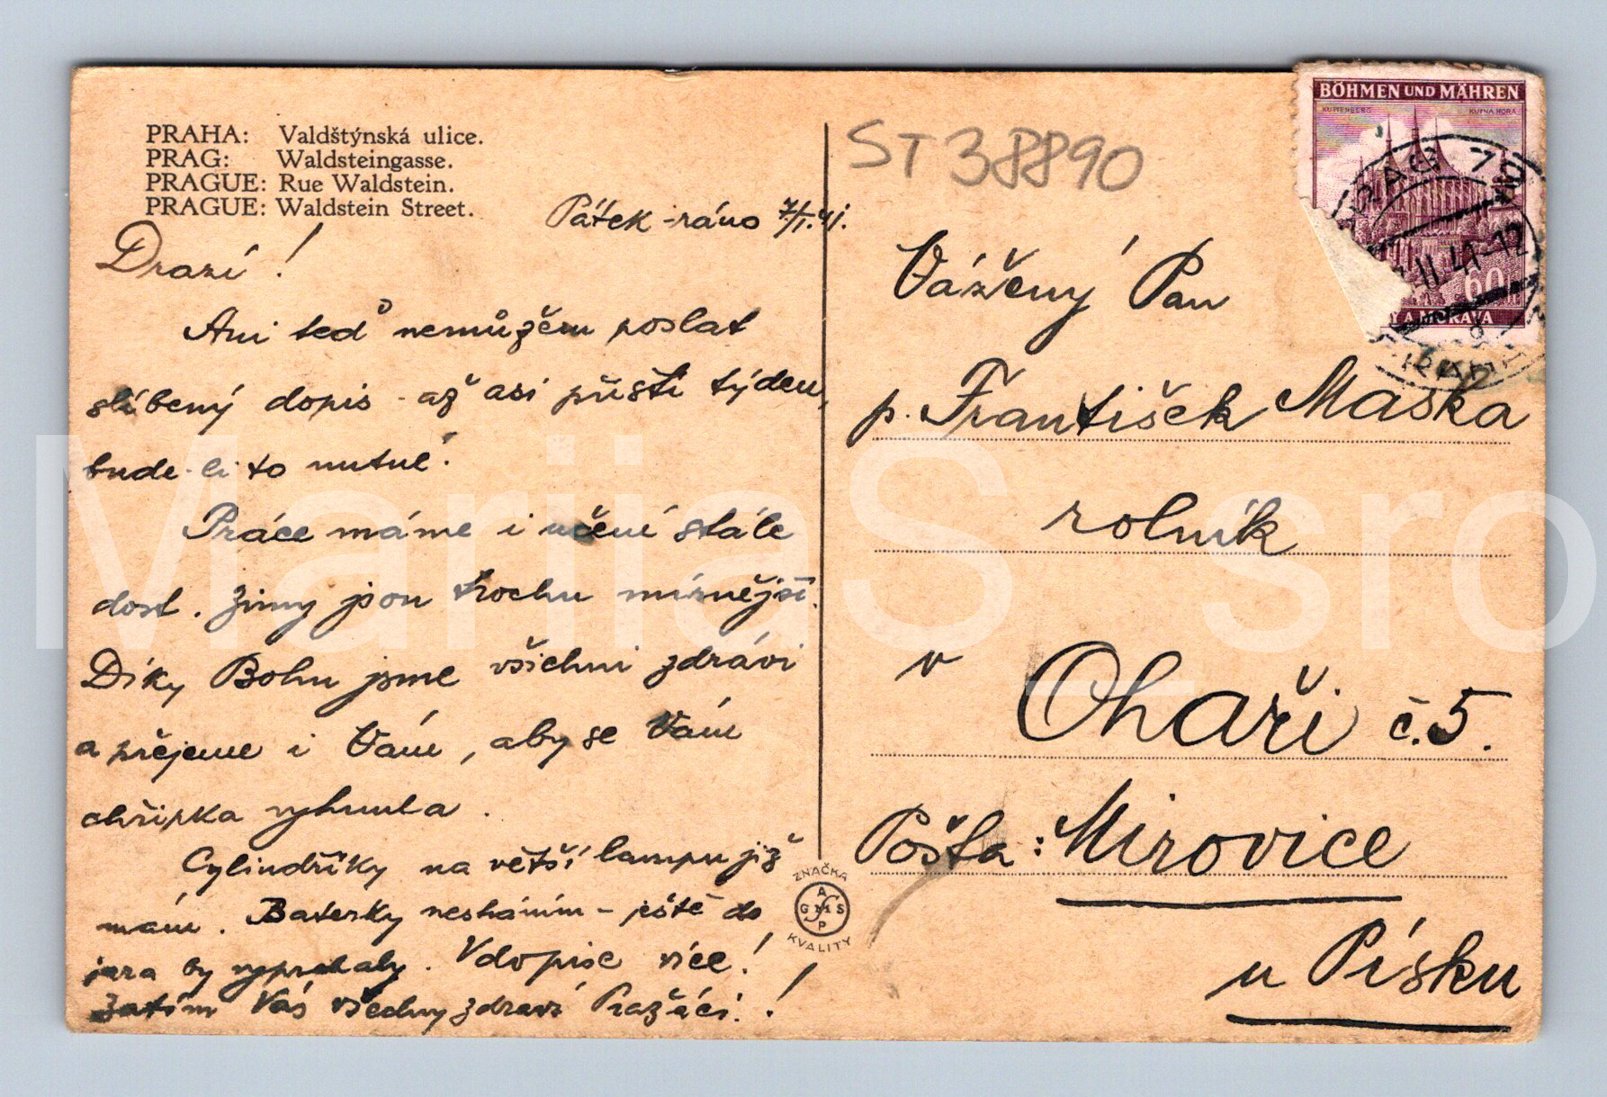 PRAHA: Valdštýnská ulice.
PRAG: Waldsteingasse.
PRAGUE: Rue Waldstein.
PRAGUE: Waldstein Street.
Pátek ráno 7/I.41.
Drazí!
Ani teď nemůžem poslat
slíbený dopis - až asi příští týden,
bude-li to nutné.
Práce máme i učení stále
dost. Zimy jsou trochu mírnější.
Díky Bohu jsme všichni zdrávi
a přejeme i Vám, aby se Vám
chřipka vyhnula.
Cylindříky na větší lampu již
mám. Baterky nesháním - ještě do
jara by vyprchaly. V dopise více!
Zatím Vás všechny zdraví Pražáci!
ZNAČKA
A
GMS
P
KVALITY
ST 38890
BÖHMEN UND MÄHREN
KUTTENBERG KUTNÁ HORA
60
Y A MORAVA
PRAG 7
II 41-12
PRAHA
Vážený Pan
p. František Maška
rolník
v Ohaři č. 5.
Pošta: Mirovice
u Písku
MariiaS_sro